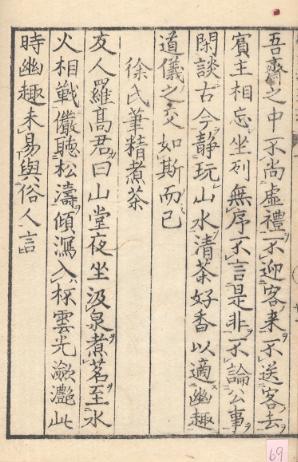 吾齋之中不尚虛禮不迎客來不送客去
賓主相忘坐列無序不言是非不論公事
閑談古今靜玩山水清茶好香以適幽趣
道儀之交如斯而已
徐氏筆精煮茶
友人羅髙君曰山堂夜坐汲泉煮茗至水
火相戰儼聽松濤傾瀉入杯雲光瀲灔此
時幽趣未易與俗人言
69